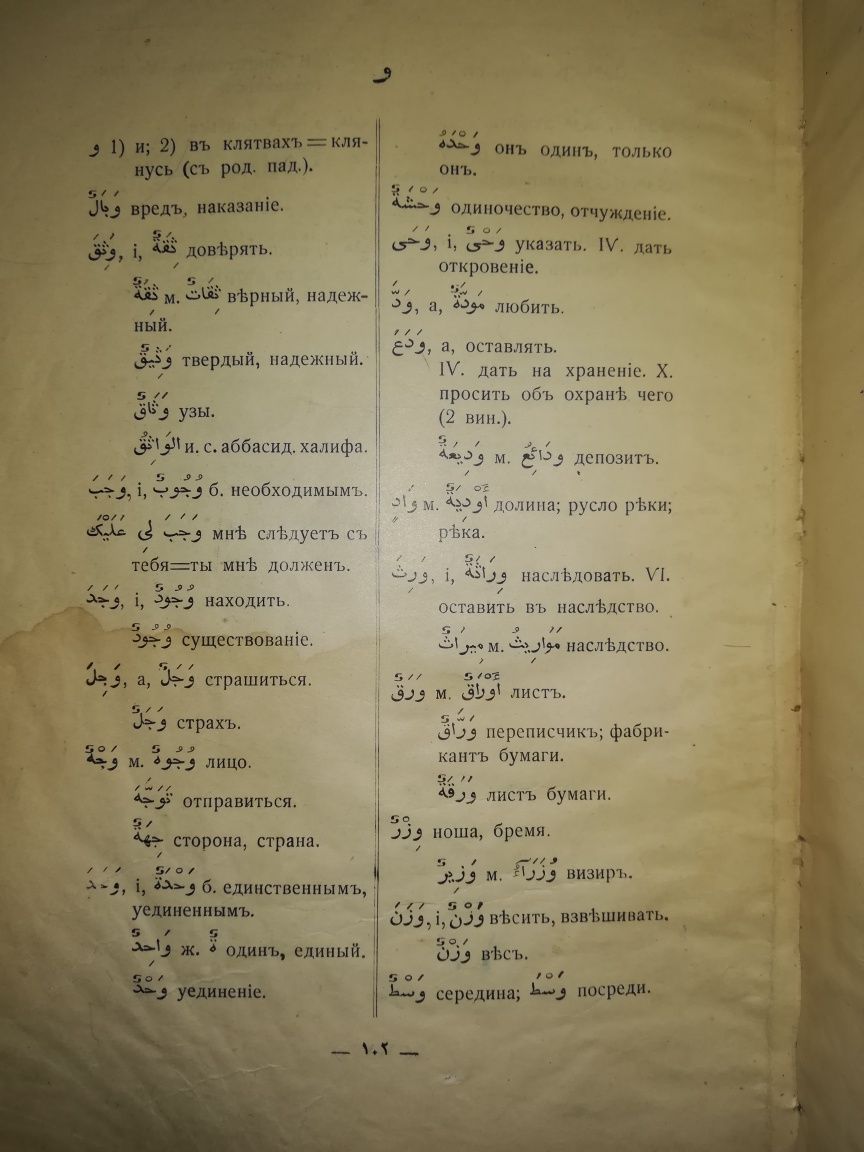 و
و 1) и; 2) въ клятвахъ = кля-
нусь (съ род. пад.).
وَبَالٌ вредъ, наказаніе.
وَثِقَ, i, ثِقَةٌ довѣрять.
ثِقَةٌ м. ثِقَاتٌ вѣрный, надеж-
ный.
وَثِيقٌ твердый, надежный.
وَثَاقٌ узы.
الوَاثِقُ и. с. аббасид. халифа.
وَجَبَ, i, وُجُوبٌ б. необходимымъ.
وَجَبَ لِى عَلَيْكَ мнѣ слѣдуетъ съ
тебя=ты мнѣ долженъ.
وَجَدَ, i, وُجُودٌ находить.
وُجُودٌ существованіе.
وَجِلَ, a, وَجَلٌ страшиться.
وَجَلٌ страхъ.
وَجْهٌ м. وُجُوهٌ лицо.
تَوَجَّهَ отправиться.
جِهَةٌ сторона, страна.
وَحَدَ, i, وَحْدَةٌ б. единственнымъ,
уединеннымъ.
وَاحِدٌ ж. ةٌ одинъ, единый.
وَحْدٌ уединеніе.
وَحْدَهُ онъ одинъ, только
онъ.
وَحْشَةٌ одиночество, отчужденіе.
وَحَى, i, وَحْىٌ указать. IV. дать
откровеніе.
وَدَّ, a, مَوَدَّةٌ любить.
وَدَعَ, a, оставлять.
IV. дать на храненіе. X.
просить объ охранѣ чего
(2 вин.).
وَدِيعَةٌ м. وَدَائِعُ депозитъ.
وَادٍ м. أَوْدِيَةٌ долина; русло рѣки;
рѣка.
وَرِثَ, i, وِرَاثَةٌ наслѣдовать. VI.
оставить въ наслѣдство.
مِيرَاثٌ м. مَوَارِيثُ наслѣдство.
وَرَقٌ м. أَوْرَاقٌ листъ.
وَرَّاقٌ переписчикъ; фабри-
кантъ бумаги.
وَرَقَةٌ листъ бумаги.
وِزْرٌ ноша, бремя.
وَزِيرٌ м. وُزَرَآءُ визирь.
وَزَنَ, i, وَزْنٌ вѣсить, взвѣшивать.
وَزْنٌ вѣсъ.
وَسْطٌ середина; وَسْطَ посреди.
— ١٠٢ —